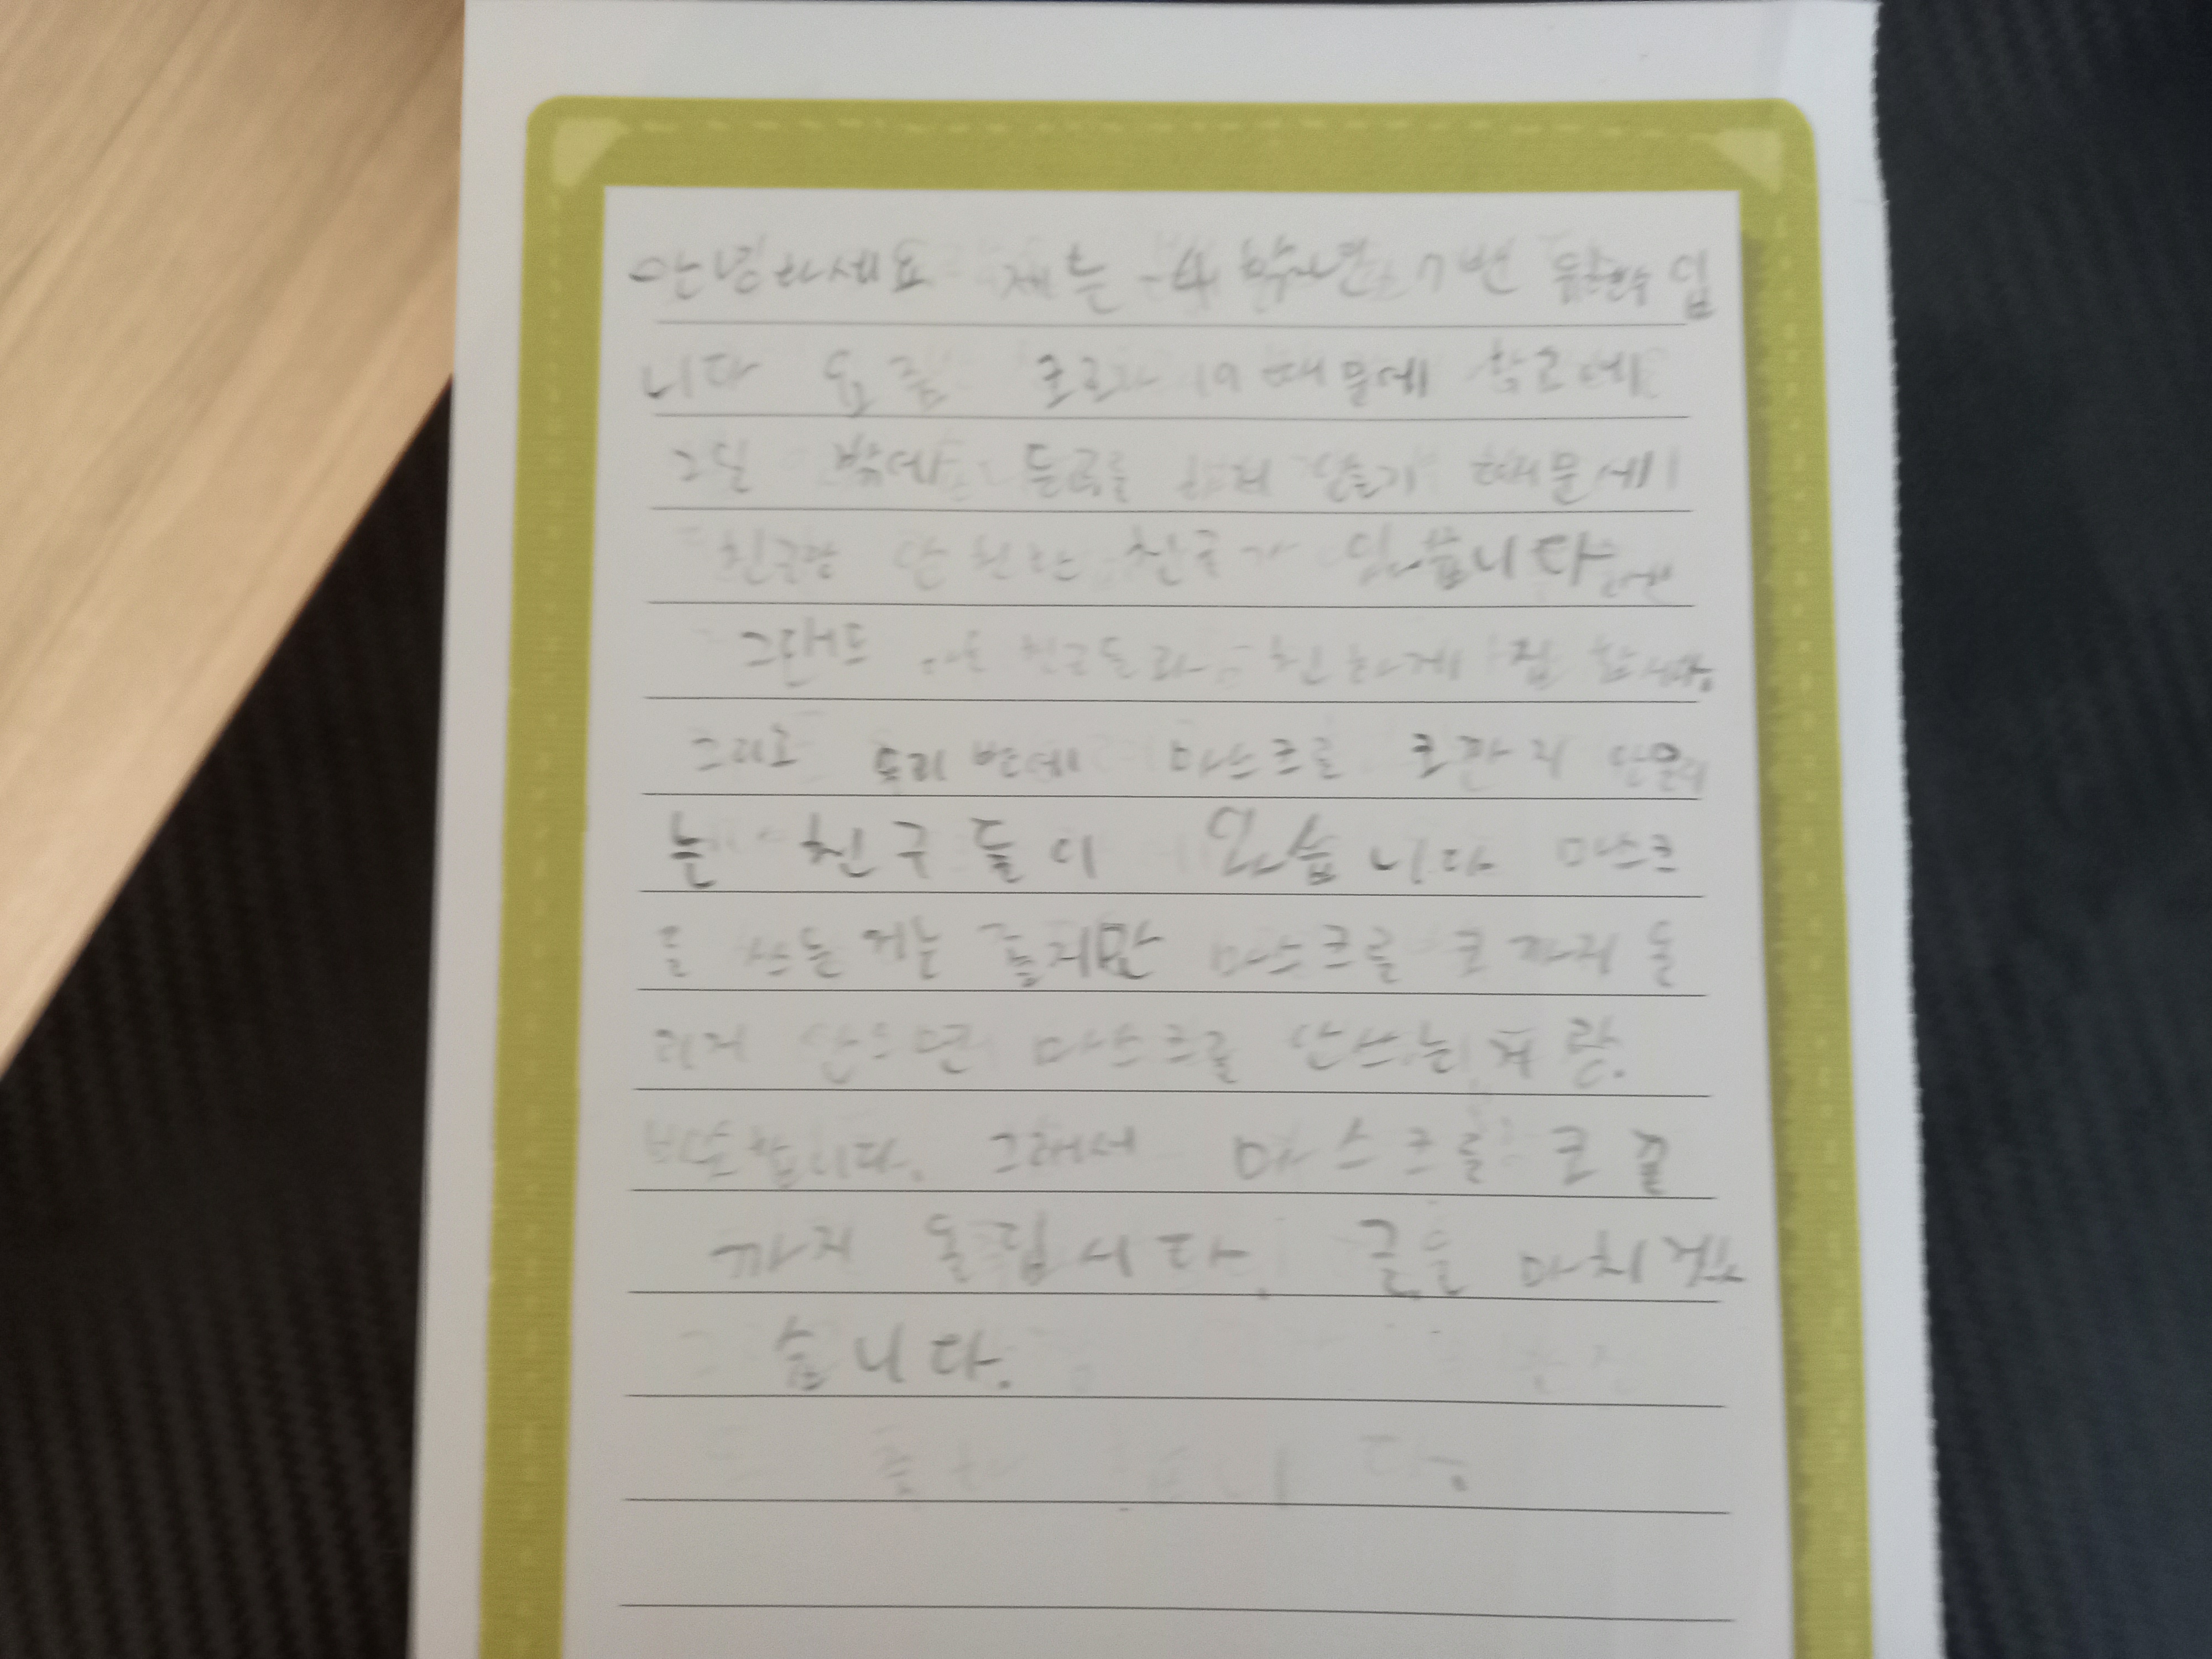 안녕하세요 제는 4학년 7번
니다 요즘 코로나 19 때문에 학교에
2일 밖에 등교를 하지 않기 때문에
친구랑 안 친한 친구가 있습니다
그래도 친구들과 친하게 합시다
그리고 우리 반에 마스크를 코까지 안올리
는 친구들이 있습니다 마스크
를 쓰는 거는 좋지만 마스크를 코까지 올
리지 안으면 마스크를 안쓰는 처럼.
비슷합니다. 그래서 마스크를 코끝
까지 올립시다. 글을 마치겠
습니다.